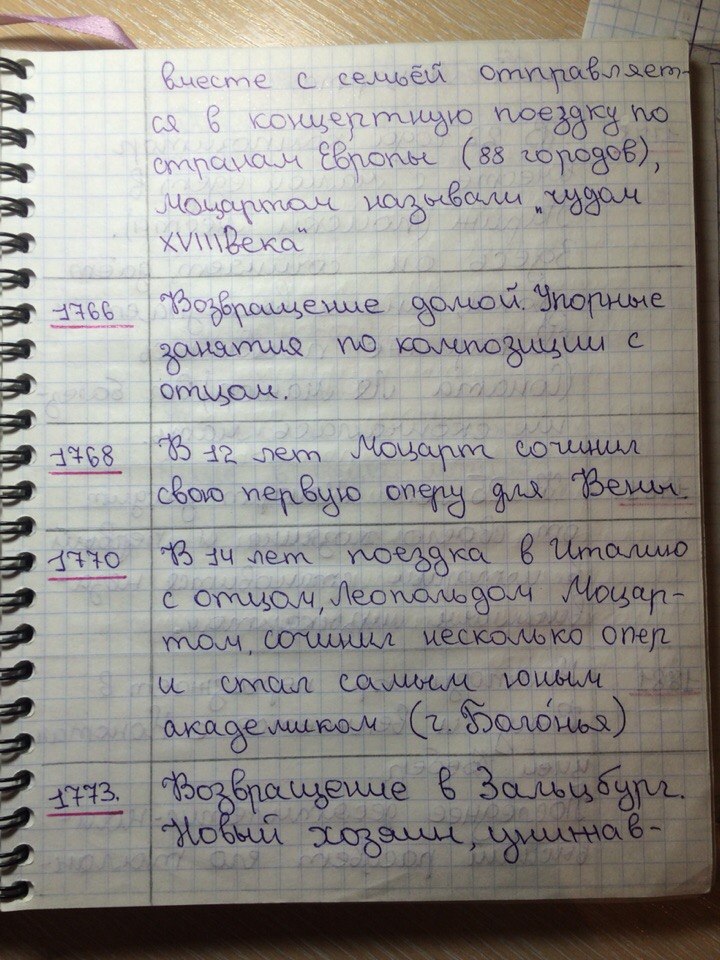 вместе с семьёй отправляет-
ся в концертную поездку по
странам Европы (88 городов),
Моцартом называли „чудом
XVIII века“
1766 Возвращение домой. Упорные
занятия по композиции с
отцом.
1768 В 12 лет Моцарт сочинил
свою первую оперу для Вены.
1770 В 14 лет поездка в Италию
с отцом, Леопольдом Моцар-
том, сочинил несколько опер
и стал самым юным
академиком (г. Боло́нья)
1773. Возвращение в Зальцбург.
Новый хозяин, унижав-